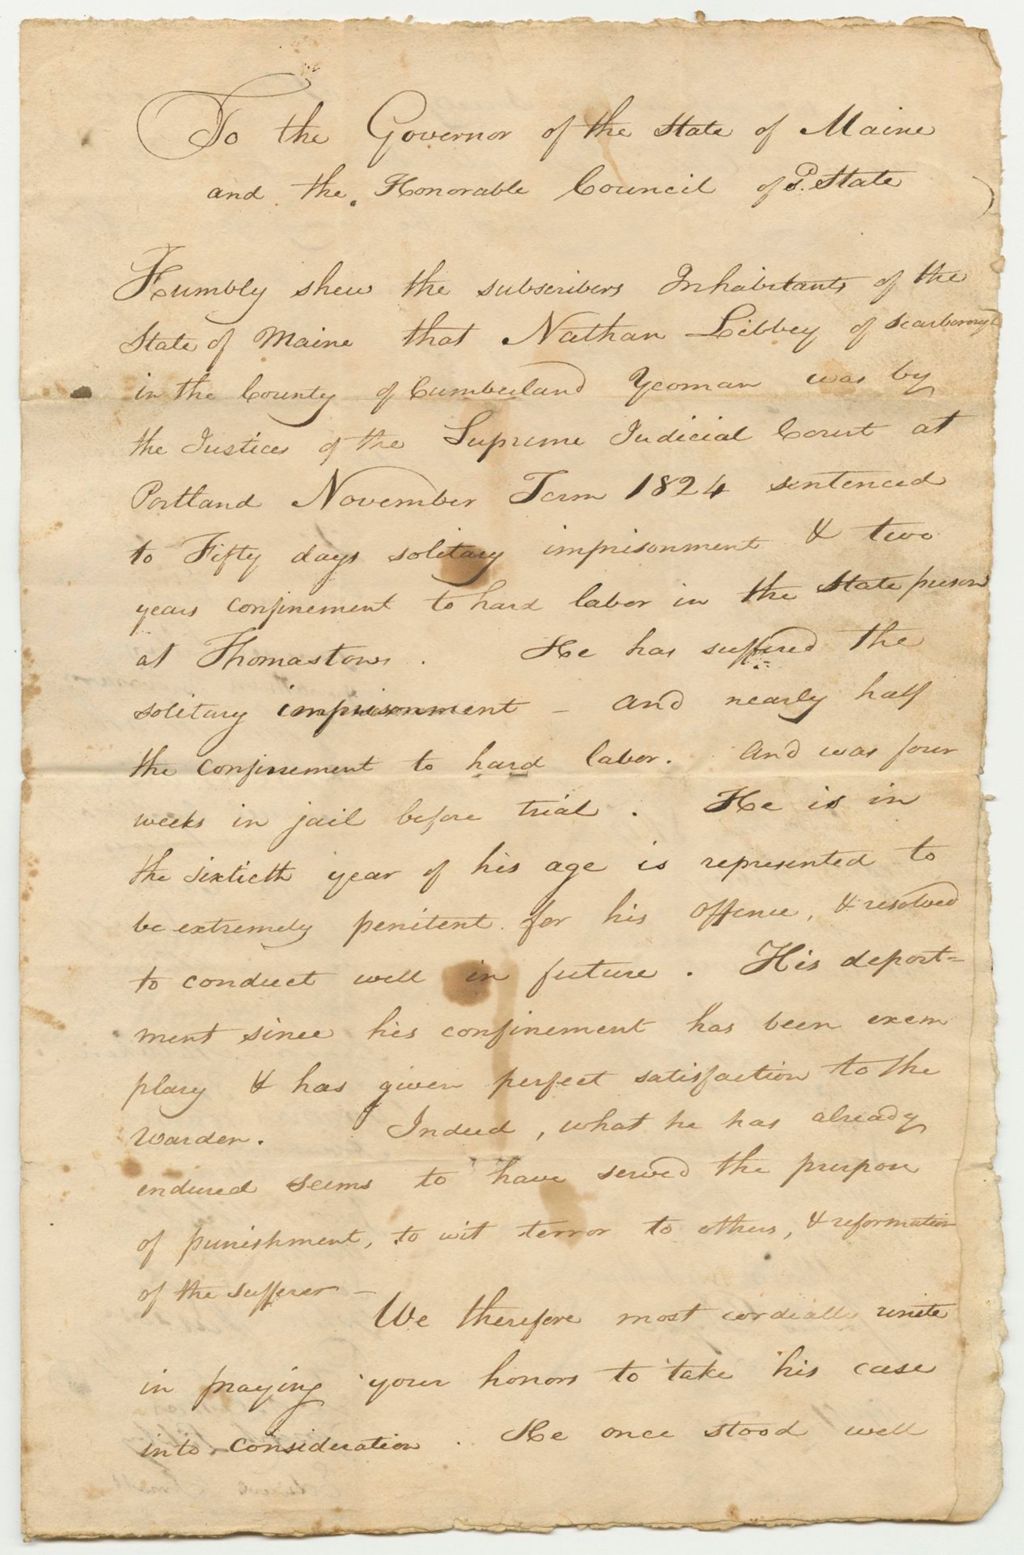 To the Governor of the State of Maine
and the Honorable Council of sd. State
Humbly shew the subscribers Inhabitants of the
State of Maine that Nathan Libbey of Scarborough
in the County of Cumberland Yeoman was by
the Justices of the Supreme Judicial Court at
Portland November Term 1824 sentenced
to Fifty days solitary imprisonment & two
years confinement to hard labor in the State prison
at Thomastown. He has suffered the
solitary imprisonment - and nearly half
the confinement to hard labor. And was four
weeks in jail before trial. He is in
the sixtieth year of his age is represented to
be extremely penitent for his offence, & resolved
to conduct well in future. His deport=
ment since his confinement has been exem
plary & has given perfect satisfaction to the
Warden. Indeed, what he has already
endured seems to have served the purpose
of punishment, to wit terror to others, & reformation
of the sufferer -
We therefore most cordially unite
in praying your honors to take his case
into consideration. He once stood well